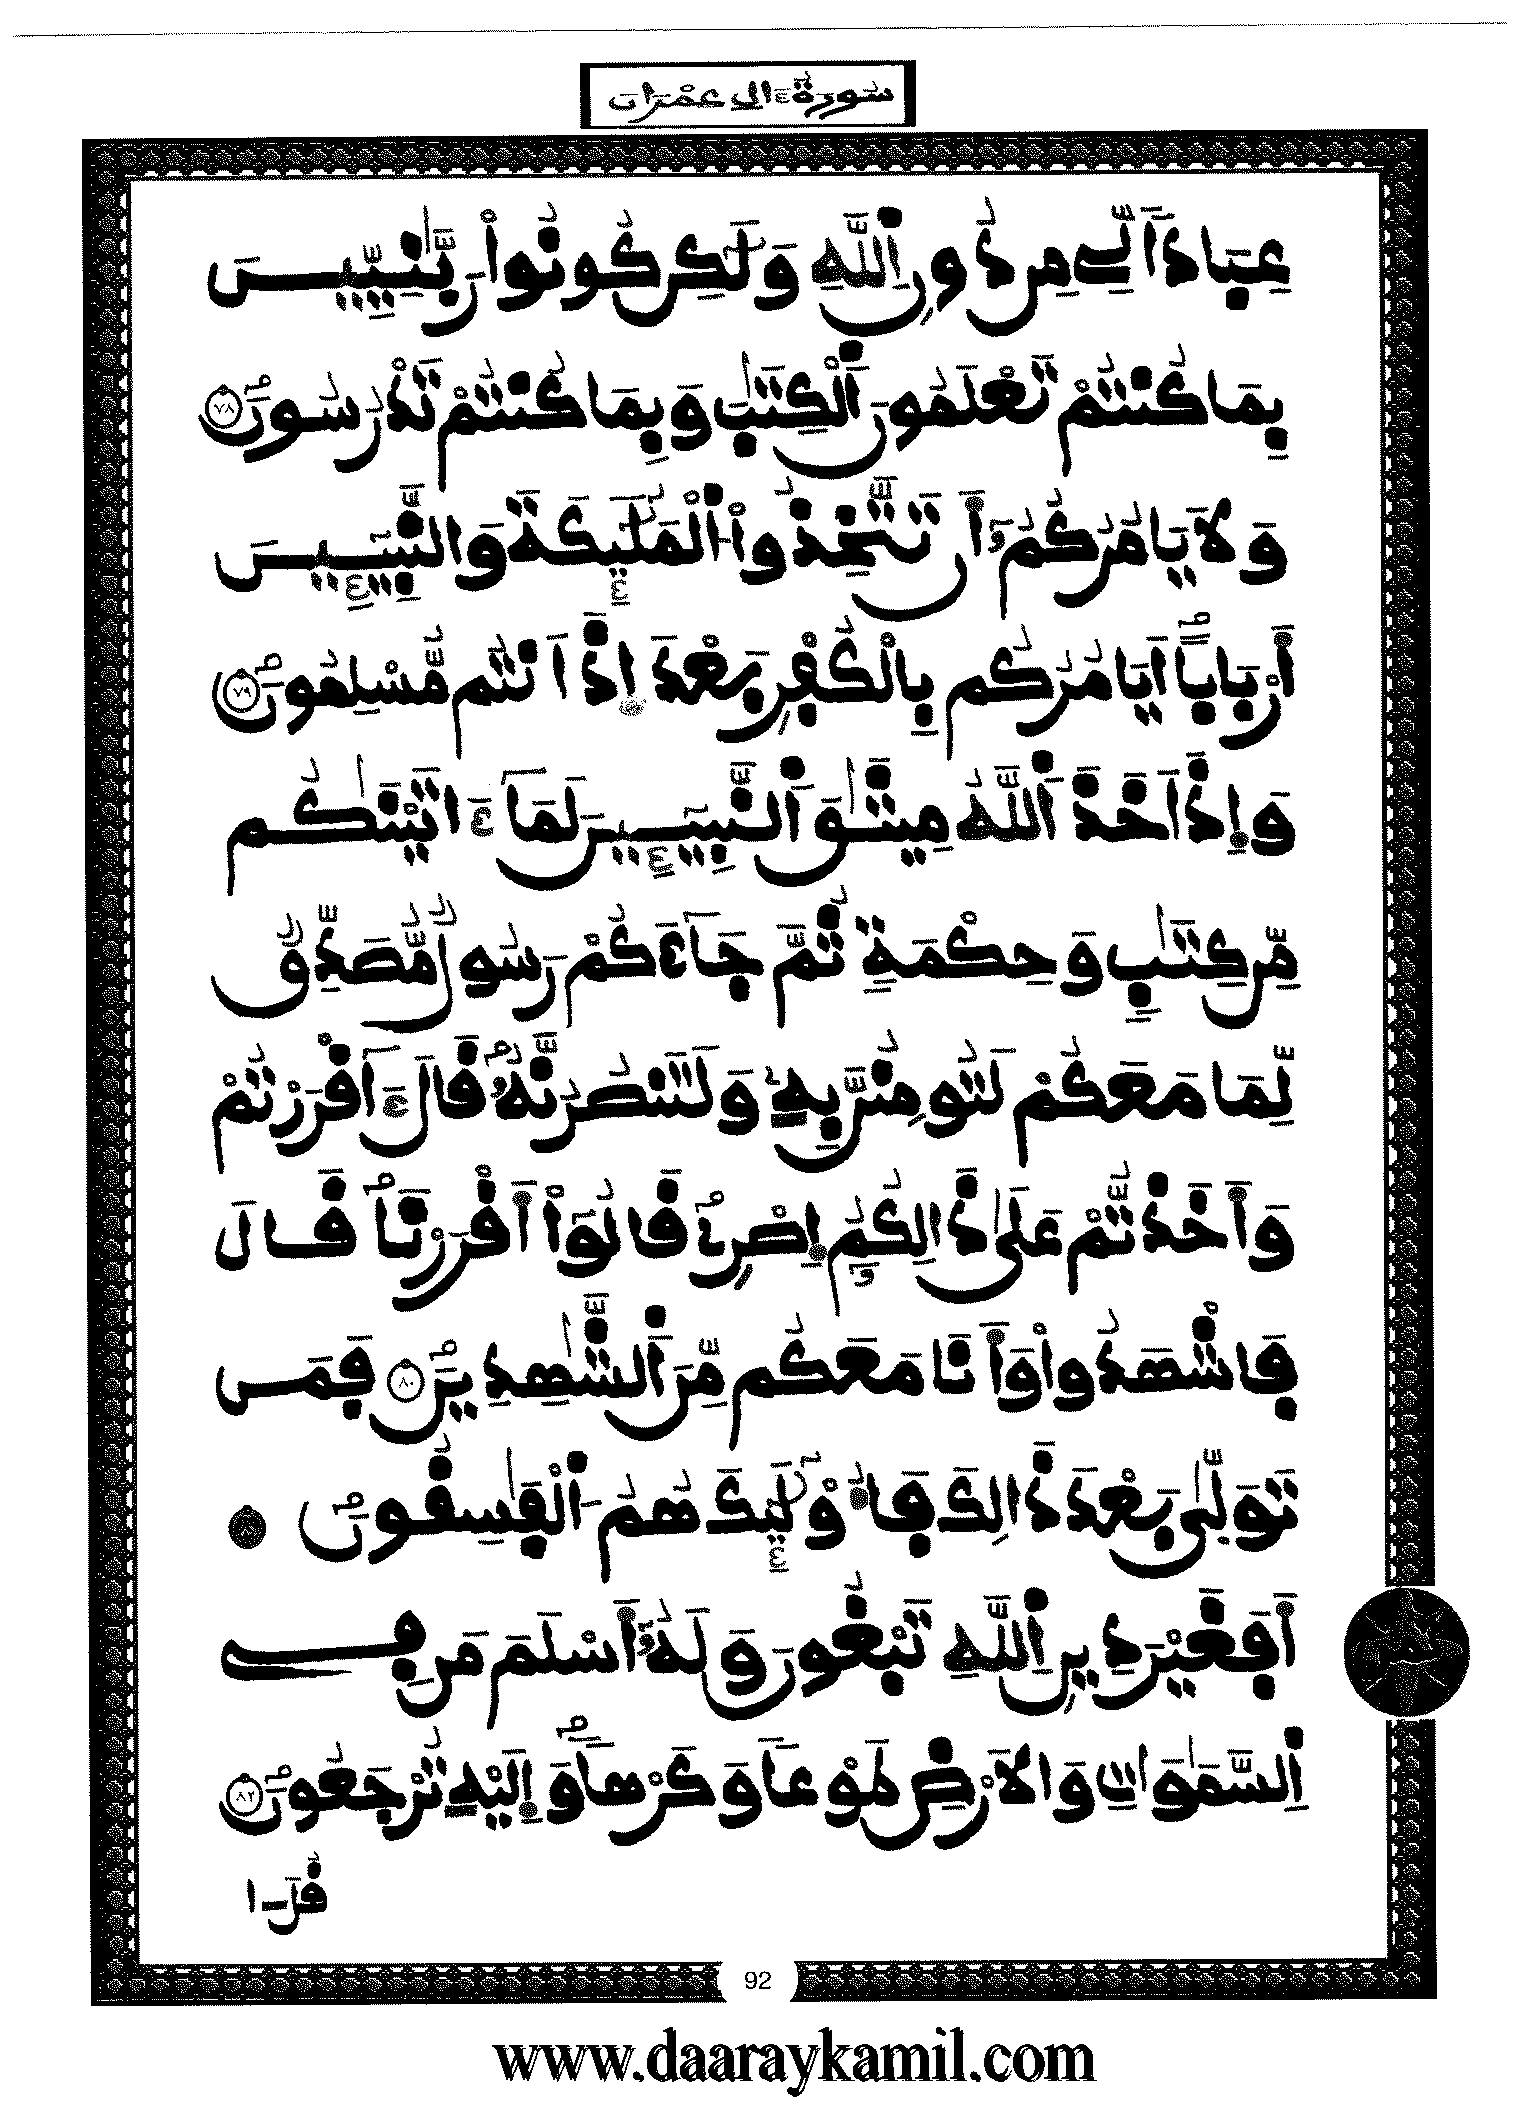 سورة ءال عمران
عِبَادٗا لِّي مِن دُونِ اِ۬للَّهِ وَلَٰكِن كُونُواْ رَبَّٰنِيِّـۧنَ
بِمَا كُنتُمْ تَعْلَمُونَ اَ۬لْكِتَٰبَ وَبِمَا كُنتُمْ تَدْرُسُونَ ٧٨
وَلَا يَامُرُكُمُۥٓ أَن تَتَّخِذُواْ اُ۬لْمَلَٰٓئِكَةَ وَالنَّبِيٓـِٕينَ
أَرْبَاباً اَيَامُرُكُم بِالْكُفْرِ بَعْدَ إِذَ اَنتُم مُّسْلِمُونَ ٧٩
وَإِذَ اَخَذَ اَ۬للَّهُ مِيثَٰقَ اَ۬لنَّبِيٓـِٕينَ لَمَآ ءَاتَيْنَٰكُم
مِّن كِتَٰبٖ وَحِكْمَةٖ ثُمَّ جَآءَكُمْ رَسُولٞ مُّصَدِّقٞ
لِّمَا مَعَكُمْ لَتُومِنُنَّ بِهِۦ وَلَتَنصُرُنَّهُۥ قَالَ ءَآقْرَرْتُمْ
وَأَخَذتُّمْ عَلَىٰ ذَالِكُمُۥٓ إِصْرِي قَالُوٓاْ أَقْرَرْنَا قَالَ
فَاشْهَدُواْ وَأَنَا مَعَكُم مِّنَ اَ۬لشَّٰهِدِينَ ٨٠ فَمَن
تَوَلَّىٰ بَعْدَ ذَالِكَ فَأُوْلَٰٓئِكَ هُمُ اُ۬لْفَٰسِقُونَ ٨١
أَفَغَيْرَ دِينِ اِ۬للَّهِ تَبْغُونَ وَلَهُۥٓ أَسْلَمَ مَن فِي
اِ۬لسَّمَٰوَاتِ وَالَارْضِ طَوْعاٗ وَكَرْهاٗ وَإِلَيْهِ تُرْجَعُونَ ٨٢
قُلَ ا
92
www.daaraykamil.com